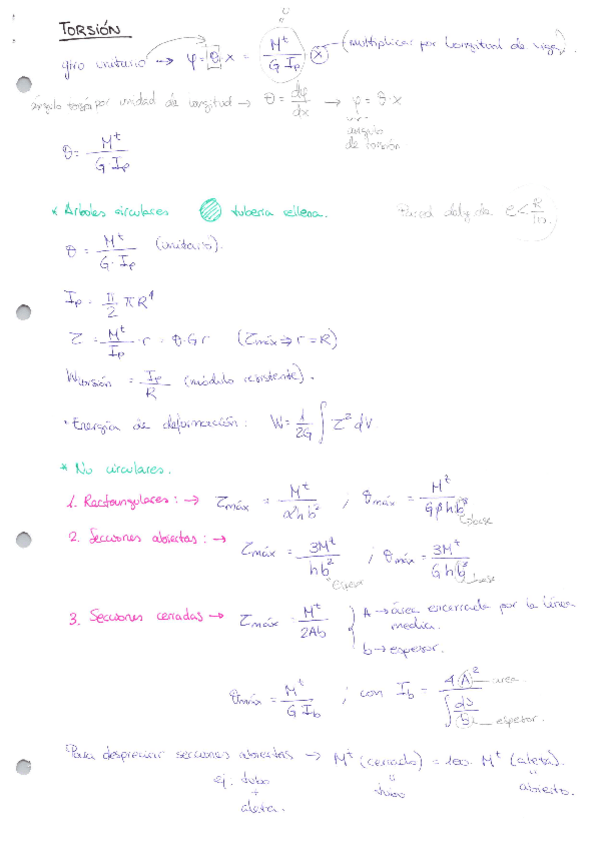 TORSIÓN
giro unitario → φ = θ · x = M^t / (G I_p) · x — (multiplicar por longitud de viga).
ángulo torsión por unidad de longitud → θ = dφ/dx → φ = θ · x
ángulo de torsión
θ = M^t / (G · I_p)
* Árboles circulares tubería rellena. Pared delgada e < R/10
θ = M^t / (G · I_p) (unitario).
I_p = π/2 π R^4
τ = M^t / I_p · r = θ · G r (τmáx ⇒ r = R)
Wtorsión = I_p / R (módulo resistente).
· Energía de deformación: W = 1/2G ∫ τ² dV
* No circulares.
1. Rectangulares: → τmáx = M^t / (α h b²) ; θmáx = M^t / (G β h b³)
base
2. Secciones abiertas: → τmáx = 3M^t / (h b²) ; θmáx = 3M^t / (G h b³)
espesor base
3. Secciones cerradas → τmáx = M^t / (2Ab) { A → área encerrada por la línea media.
b → espesor.
θmáx = M^t / (G I_b) ; con I_b = 4 A² / ∫ ds/b
área
espesor.
Para despreciar secciones abiertas → M^t (cerrado) = 100 M^t (aleta).
ej. tubo + aleta. tubo abierto.